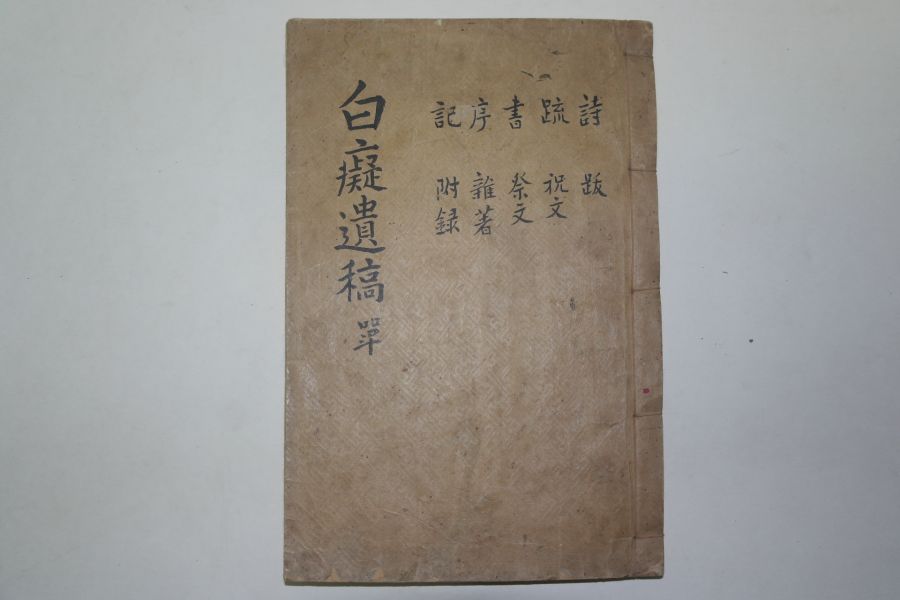 詩 跋
疏 祝文
書 祭文
序 雜著
記 附録
白癡遺稿 單